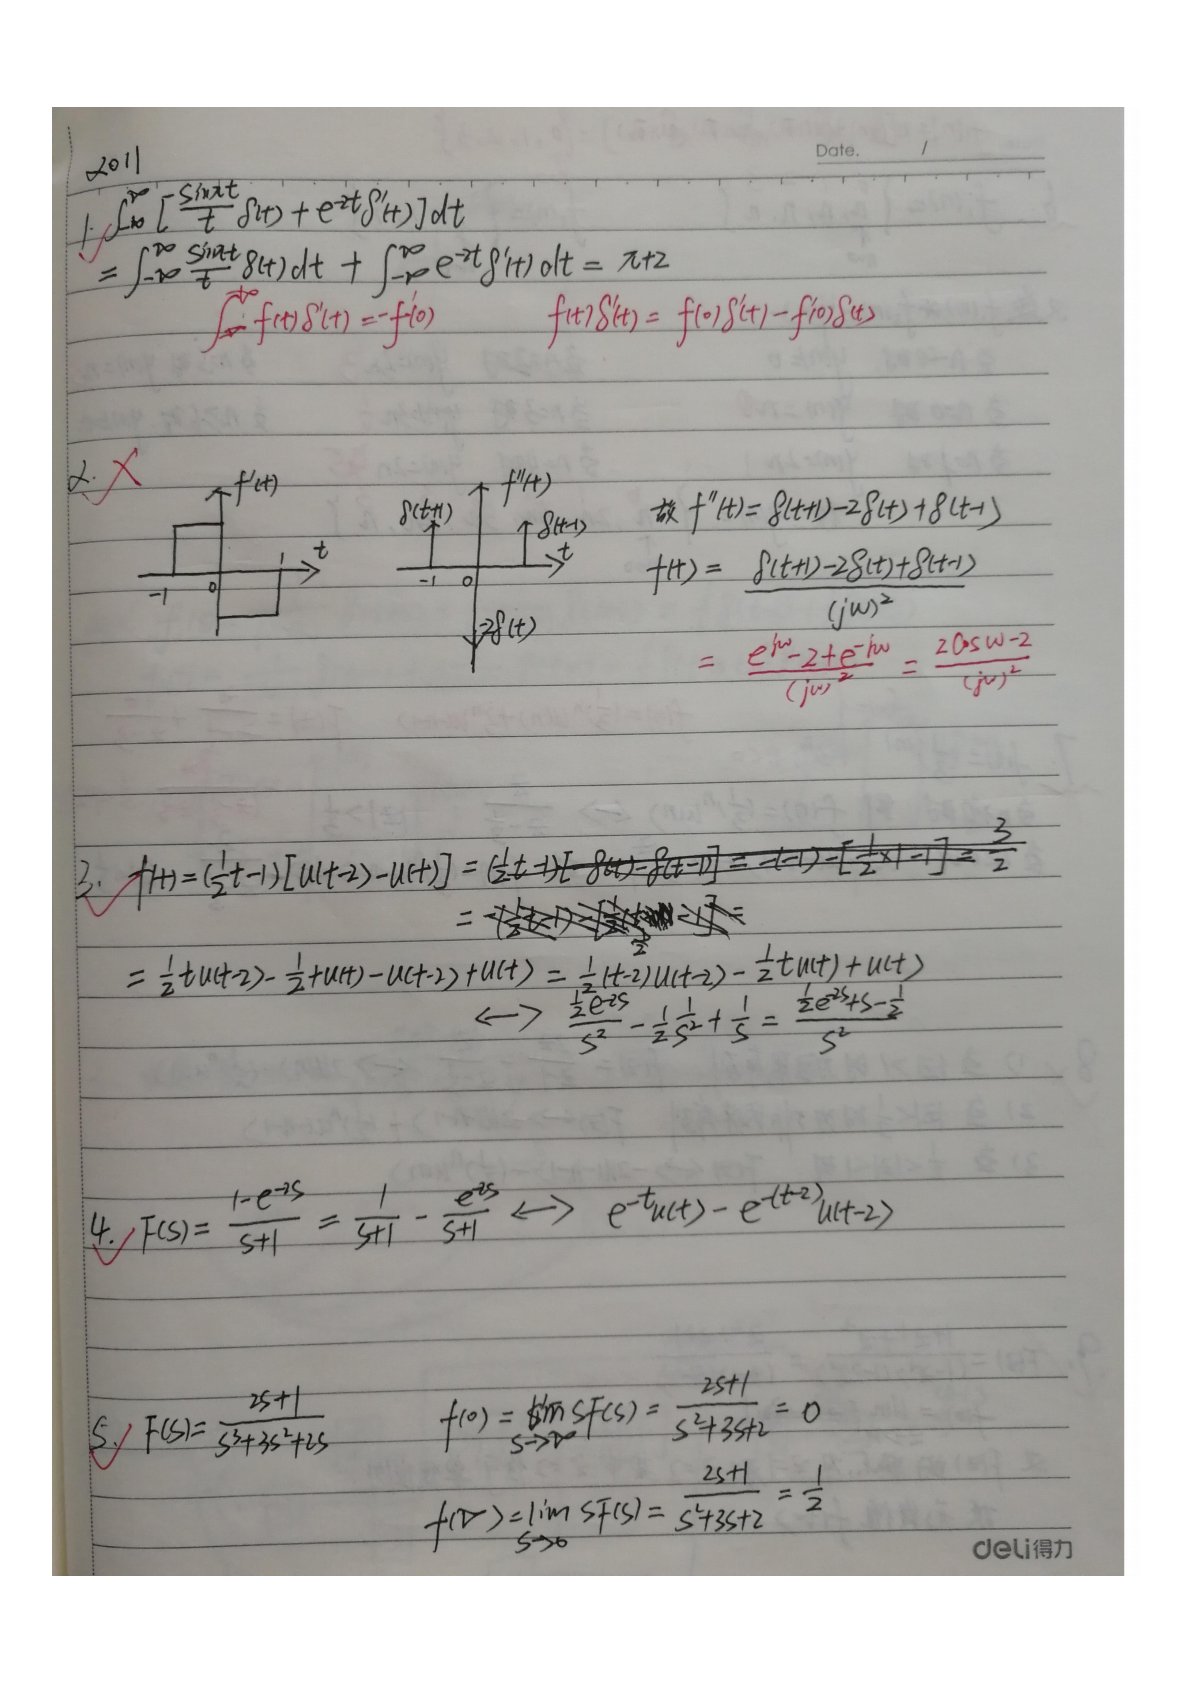 2011
Date. /
1. ∫_{-∞}^{∞} [ (sinπt/t) δ(t) + e^{-2t} δ'(t) ] dt
= ∫_{-∞}^{∞} (sinπt/t) δ(t) dt + ∫_{-∞}^{∞} e^{-2t} δ'(t) dt = π+2
∫_{-∞}^{+∞} f(t) δ'(t) = -f'(0)    f(t) δ'(t) = f(0) δ'(t) - f'(0) δ(t)
2. ×
f'(t)  t  -1  0  1
f''(t)  δ(t+1)  δ(t-1)  t  -1  0  -2δ(t)
故 f''(t) = δ(t+1) - 2δ(t) + δ(t-1)
f(t) = (δ(t+1) - 2δ(t) + δ(t-1)) / (jω)^2
= (e^{jω} - 2 + e^{-jω}) / (jω)^2 = (2cosω - 2) / (jω)^2
3. f(t) = (1/2 t - 1)[u(t-2) - u(t)] = (1/2 t - 1)[-δ(t) - δ(t-1)] = -(-1) - [1/2 × 1 - 1] = 3/2
= 1/2 t u(t-2) - 1/2 t u(t) - u(t-2) + u(t) = 1/2 (t-2) u(t-2) - 1/2 t u(t) + u(t)
<-> (1/2 e^{-2s}) / s^2 - 1/2 1/s^2 + 1/s = (1/2 e^{-2s} + s - 1/2) / s^2
4. F(s) = (1 - e^{-2s}) / (s+1) = 1/(s+1) - e^{-2s}/(s+1) <-> e^{-t} u(t) - e^{-(t-2)} u(t-2)
5. F(s) = (2s+1) / (s^3+3s^2+2s)    f(0) = lim_{s→∞} sF(s) = (2s+1) / (s^2+3s+2) = 0
f(∞) = lim_{s→0} sF(s) = (2s+1) / (s^2+3s+2) = 1/2
deli得力